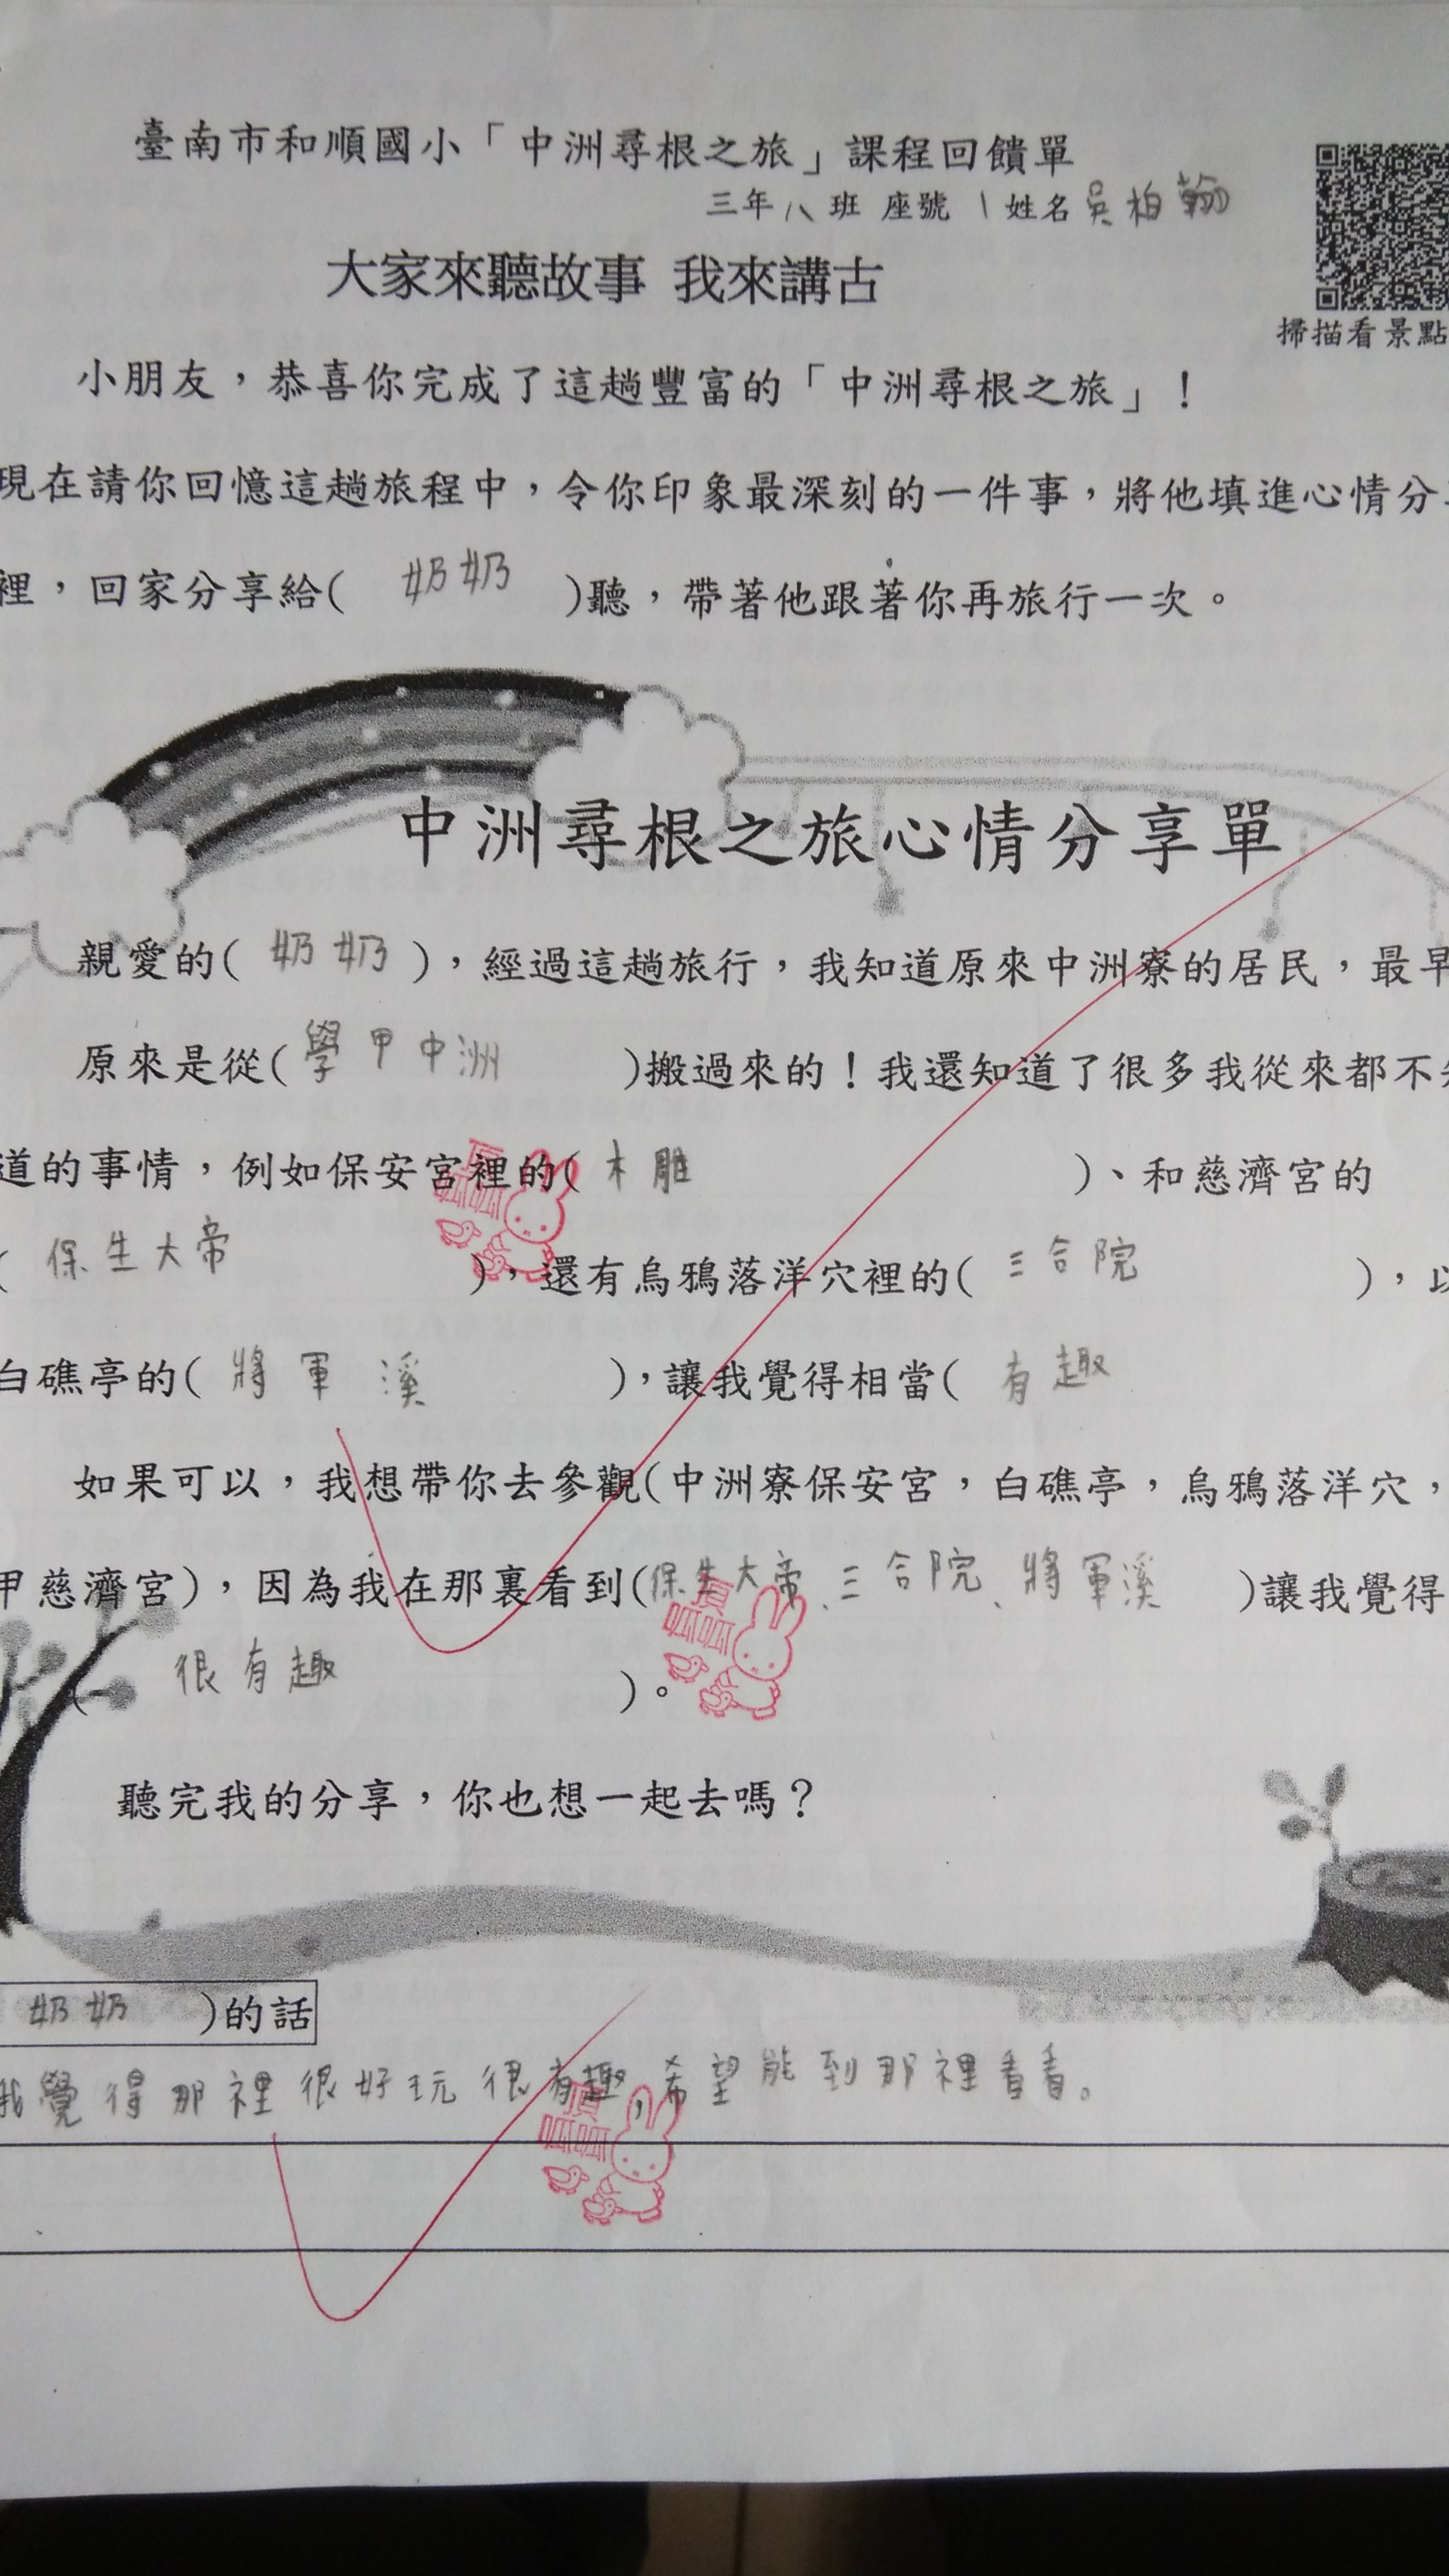 臺南市和順國小「中洲尋根之旅」課程回饋單
三年八班 座號 1 姓名 吳柏翰
大家來聽故事 我來講古
掃描看景點
小朋友，恭喜你完成了這趟豐富的「中洲尋根之旅」！
現在請你回憶這趟旅程中，令你印象最深刻的一件事，將他填進心情分
裡，回家分享給( 奶奶 )聽，帶著他跟著你再旅行一次。
中洲尋根之旅心情分享單
親愛的( 奶奶 )，經過這趟旅行，我知道原來中洲寮的居民，最早
原來是從( 學甲中洲 )搬過來的！我還知道了很多我從來都不
道的事情，例如保安宮裡的( 木雕 )、和慈濟宮的
( 保生大帝 )，還有烏鴉落洋穴裡的( 三合院 )，以
白礁亭的( 將軍溪 )，讓我覺得相當( 有趣
如果可以，我想帶你去參觀(中洲寮保安宮，白礁亭，烏鴉落洋穴，
甲慈濟宮)，因為我在那裏看到(保生大帝、三合院、將軍溪 )讓我覺得
( 很有趣 )。
聽完我的分享，你也想一起去嗎？
奶奶 )的話
我覺得那裡很好玩很有趣,希望能到那裡看看。